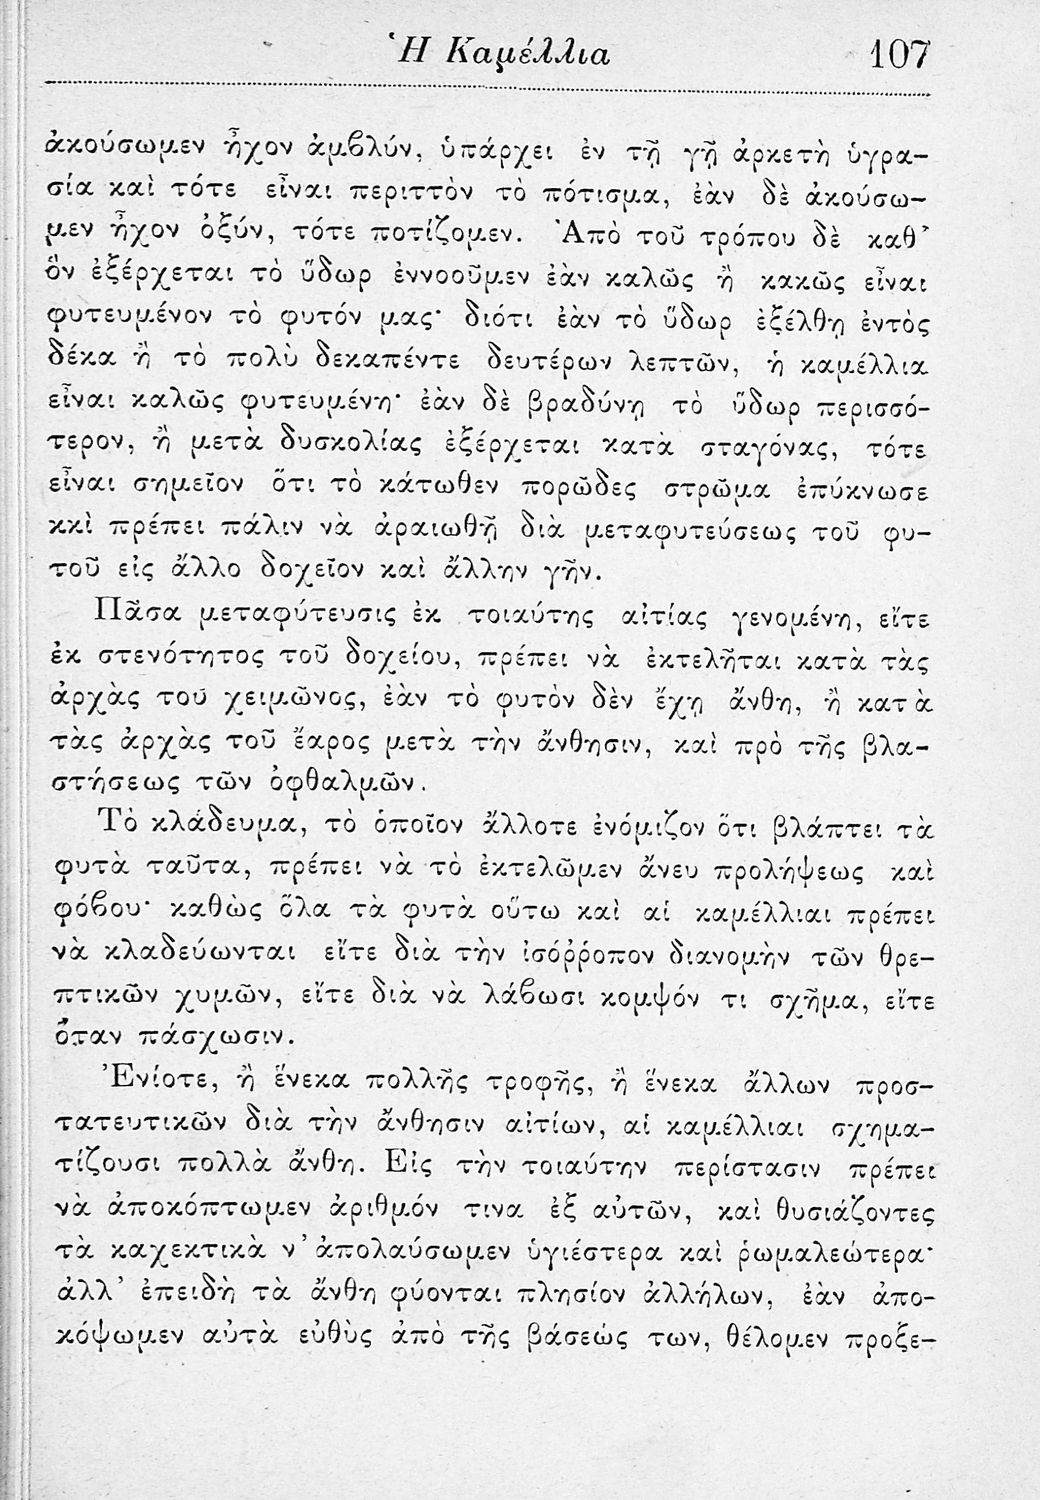 Ἡ Καμέλλια 107
ἀκούσωμεν ἦχον ἀμβλύν, ὑπάρχει ἐν τῇ γῇ ἀρκετὴ ὑγρα-
σία καὶ τότε εἶναι περιττὸν τὸ πότισμα, ἐὰν δὲ ἀκούσω-
μεν ἦχον ὀξύν, τότε ποτίζομεν. Ἀπὸ τοῦ τρόπου δὲ καθ’
ὃν ἐξέρχεται τὸ ὕδωρ ἐννοοῦμεν ἐὰν καλῶς ἢ κακῶς εἶναι
φυτευμένον τὸ φυτόν μας· διότι ἐὰν τὸ ὕδωρ ἐξέλθῃ ἐντὸς
δέκα ἢ τὸ πολὺ δεκαπέντε δευτέρων λεπτῶν, ἡ καμέλλια
εἶναι καλῶς φυτευμένη· ἐὰν δὲ βραδύνῃ τὸ ὕδωρ περισσό-
τερον, ἢ μετὰ δυσκολίας ἐξέρχεται κατὰ σταγόνας, τότε
εἶναι σημεῖον ὅτι τὸ κάτωθεν πορῶδες στρῶμα ἐπύκνωσε
κκὶ πρέπει πάλιν νὰ ἀραιωθῇ διὰ μεταφυτεύσεως τοῦ φυ-
τοῦ εἰς ἄλλο δοχεῖον καὶ ἄλλην γῆν.
Πᾶσα μεταφύτευσις ἐκ τοιαύτης αἰτίας γενομένη, εἴτε
ἐκ στενότητος τοῦ δοχείου, πρέπει νὰ ἐκτελῆται κατὰ τὰς
ἀρχὰς τοῦ χειμῶνος, ἐὰν τὸ φυτὸν δὲν ἔχῃ ἄνθη, ἢ κατὰ
τὰς ἀρχὰς τοῦ ἔαρος μετὰ τὴν ἄνθησιν, καὶ πρὸ τῆς βλα-
στήσεως τῶν ὀφθαλμῶν.
Τὸ κλάδευμα, τὸ ὁποῖον ἄλλοτε ἐνόμιζον ὅτι βλάπτει τὰ
φυτὰ ταῦτα, πρέπει νὰ τὸ ἐκτελῶμεν ἄνευ προλήψεως καὶ
φόβου· καθὼς ὅλα τὰ φυτὰ οὕτω καὶ αἱ καμέλλιαι πρέπει
νὰ κλαδεύωνται εἴτε διὰ τὴν ἰσόῤῥοπον διανομὴν τῶν θρε-
πτικῶν χυμῶν, εἴτε διὰ νὰ λάβωσι κομψόν τι σχῆμα, εἴτε
ὅταν πάσχωσιν.
Ἐνίοτε, ἢ ἕνεκα πολλῆς τροφῆς, ἢ ἕνεκα ἄλλων προσ-
τατευτικῶν διὰ τὴν ἄνθησιν αἰτίων, αἱ καμέλλιαι σχημα-
τίζουσι πολλὰ ἄνθη. Εἰς τὴν τοιαύτην περίστασιν πρέπει
νὰ ἀποκόπτωμεν ἀριθμόν τινα ἐξ αὐτῶν, καὶ θυσιάζοντες
τὰ καχεκτικὰ ν’ ἀπολαύσωμεν ὑγιέστερα καὶ ῥωμαλεώτερα·
ἀλλ’ ἐπειδὴ τὰ ἄνθη φύονται πλησίον ἀλλήλων, ἐὰν ἀπο-
κόψωμεν αὐτὰ εὐθὺς ἀπὸ τῆς βάσεώς των, θέλομεν προξε-